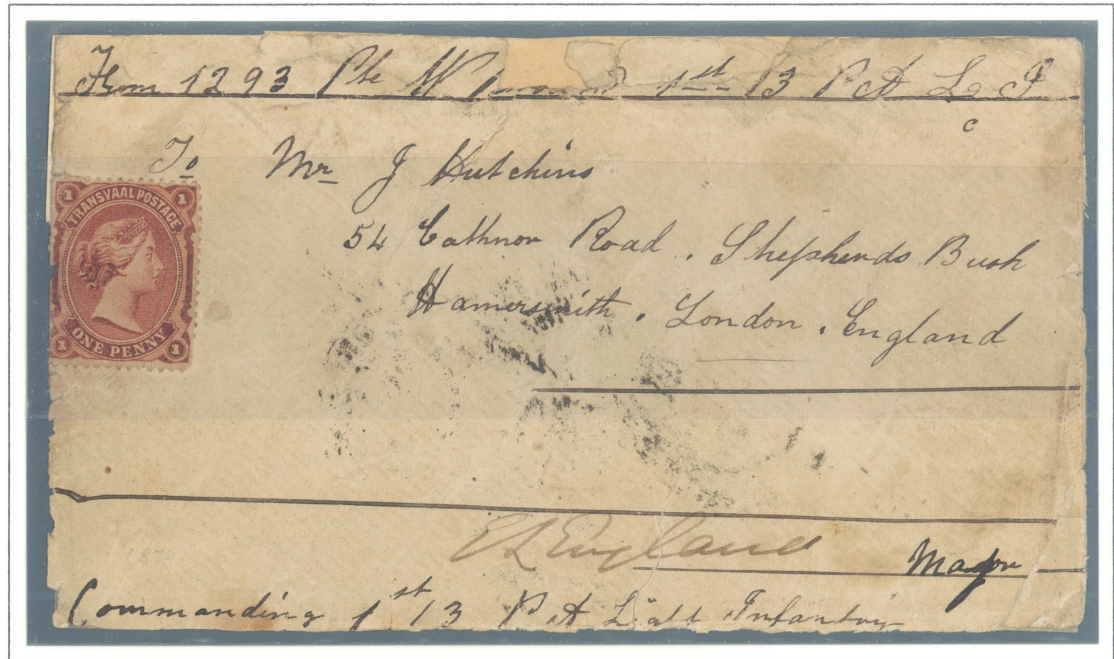 From 1293 Pte W 1st 13 P A L I
c
To Mr J Hutchins
54 Cathnor Road. Shepherds Bush
Hamersmith. London. England
1 TRANSVAAL POSTAGE 1
1 ONE PENNY 1
E L England Major
Commanding 1st 13 P A Light Infantry